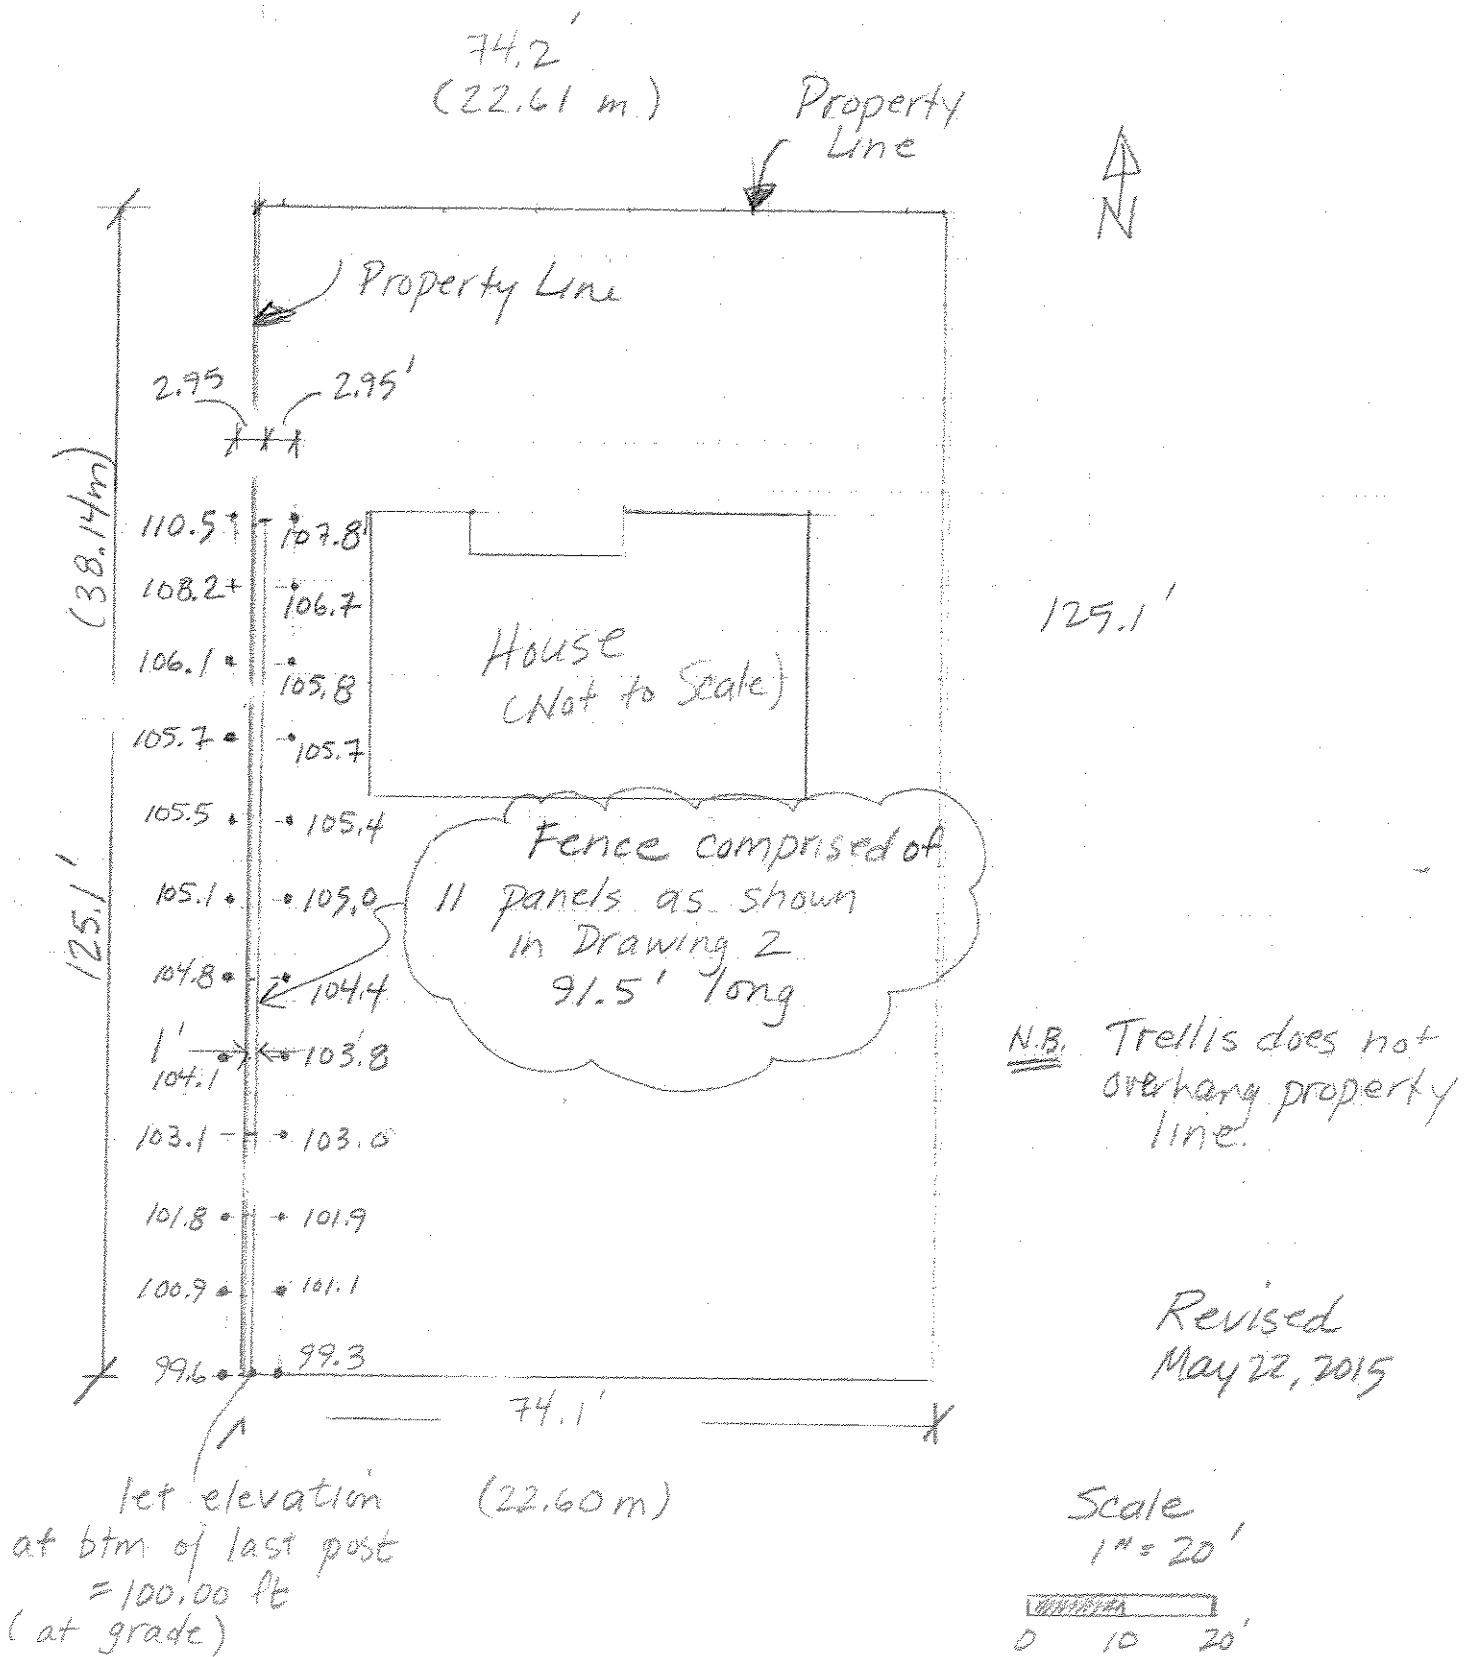 74.2'
(22.61 m)
Property
Line
N
Property Line
2.95
2.95'
(38.14m)
125.1'
110.5
107.8
108.2
106.7
106.1
105.8
105.7
105.7
105.5
105.4
105.1
105.0
104.8
104.4
1'
104.1
103.8
103.1
103.0
101.8
101.9
100.9
101.1
99.6
99.3
House
(Not to Scale)
125.1'
Fence comprised of
11 panels as shown
in Drawing 2
91.5' long
N.B. Trellis does not
overhang property
line.
Revised
May 22, 2015
74.1'
(22.60m)
let elevation
at btm of last post
=100.00 ft
(at grade)
Scale
1"=20'
0 10 20'